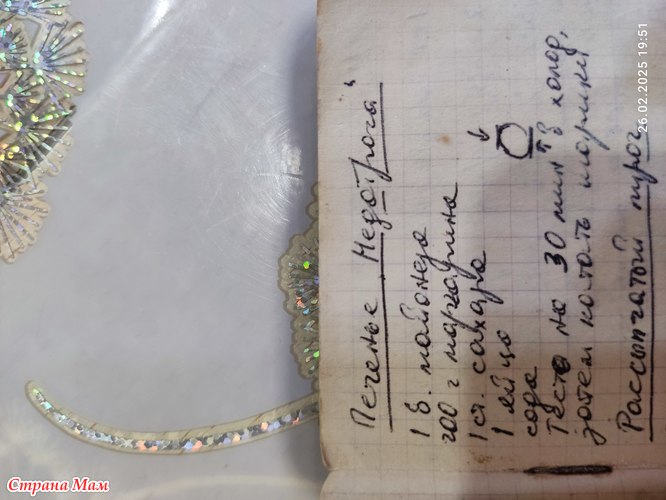 Печенье „Недотрога“
1 б. майонеза
200 г маргарина
1 ст. сахара
1 яйцо
сода
Тесто на 30 мин в холод,
затем катать шарики
Рассыпчатый пирог
26.02.2025 19:51
Страна Мам